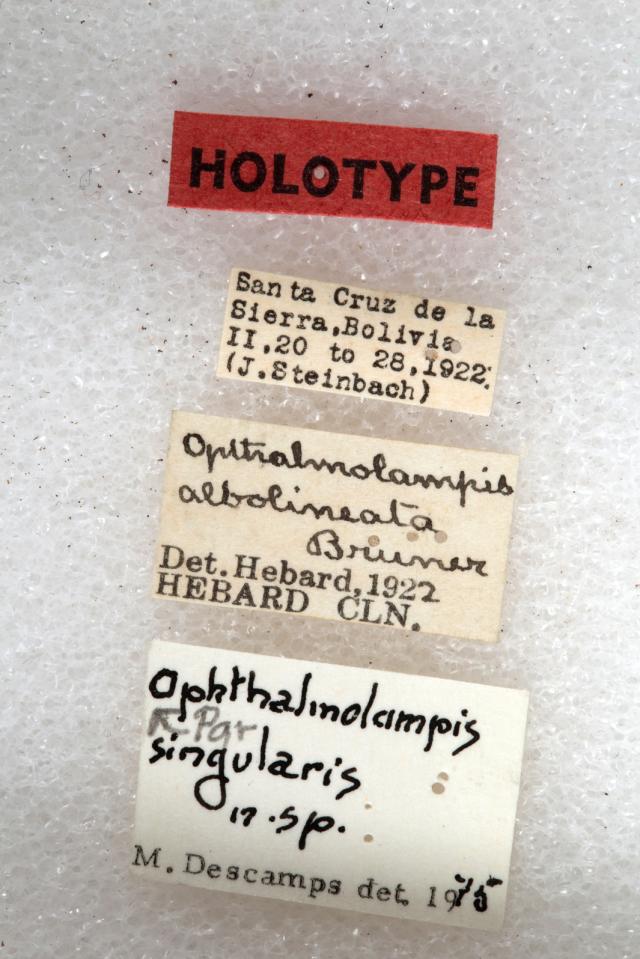 HOLOTYPE
Santa Cruz de la
Sierra, Bolivia
II, 20 to 28, 1922.
(J. Steinbach)
Opthalmolampis
albolineata
Bruner
Det. Hebard, 1922
HEBARD CLN.
Ophthalmolampis
Par
singularis
n. sp.
M. Descamps det. 1975